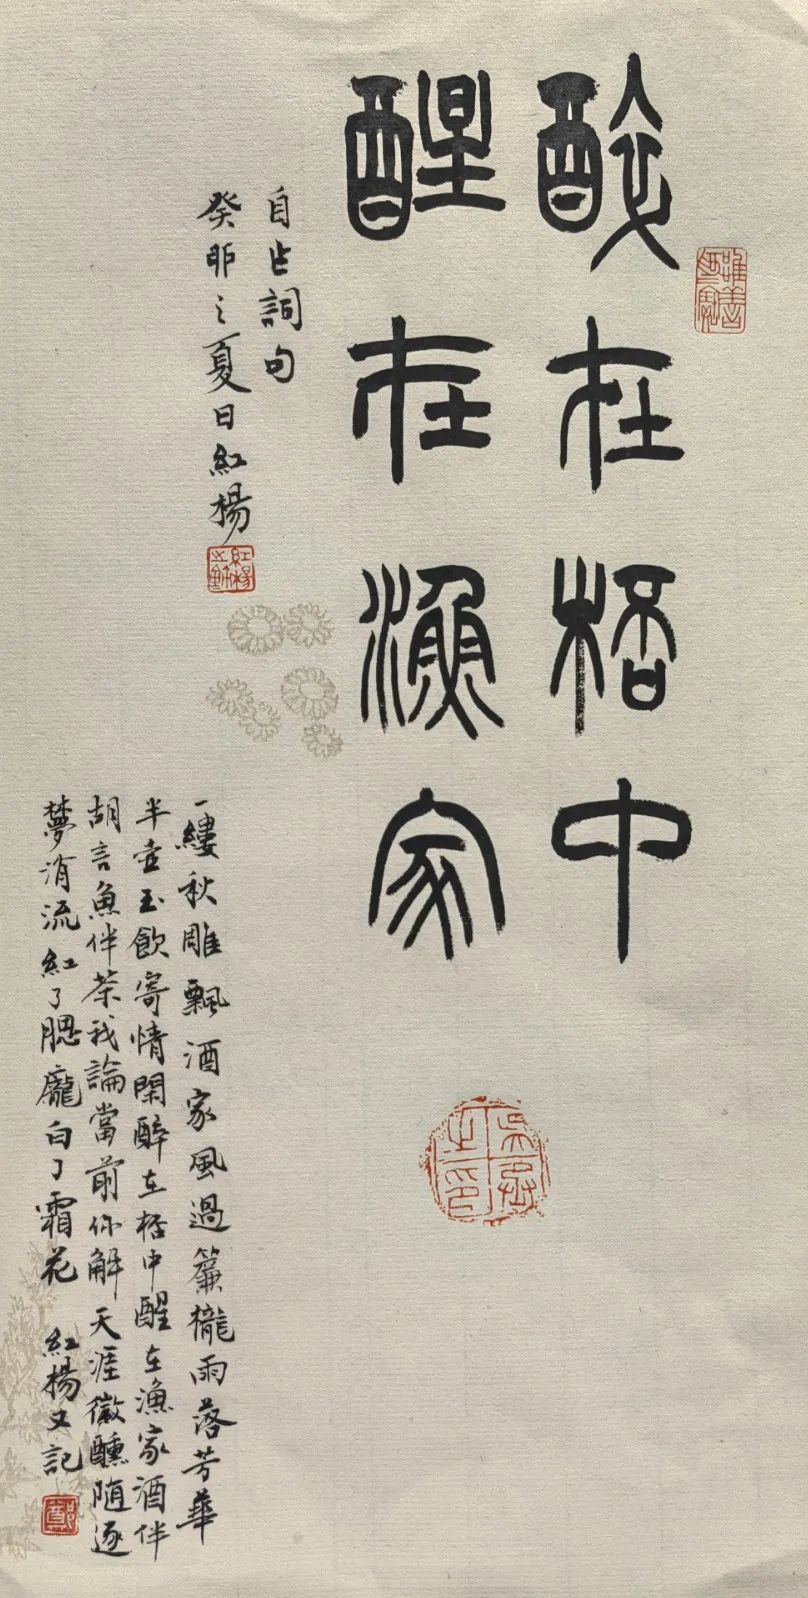 醉在桮中
醒在漁家
自作詞句
癸卯之夏日紅楊
紅楊之鉨
一縷秋雕飄酒家風過簾櫳雨落芳華
半壺玉飲寄情閑醉在桮中醒在漁家酒伴
胡言魚伴茶我論當前你解天涯微醺随逐
夢消流紅了腮龐白了霜花 紅楊又記